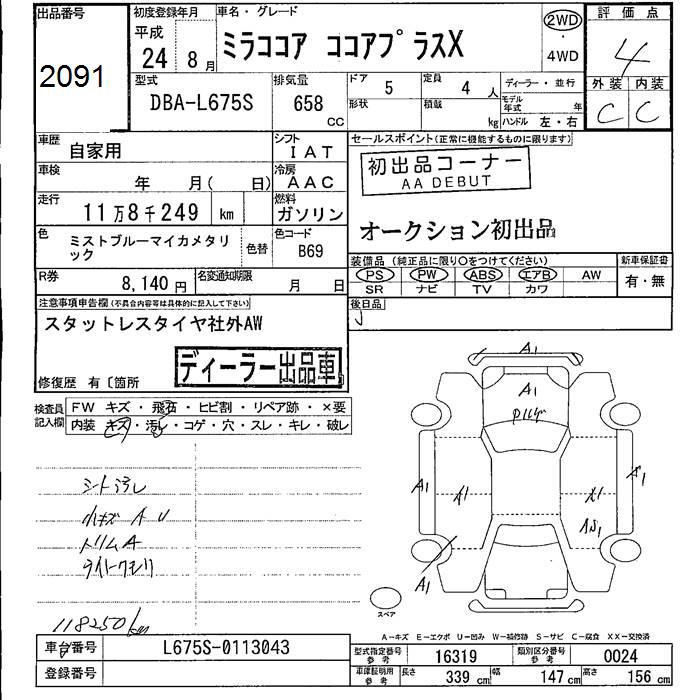 出品番号
2091
初度登録年月
平成
24 8月
車名・グレード
ミラココア ココアプラスX
2WD
・
4WD
評価点
4
外装 内装
C C
型式
DBA-L675S
排気量
658
CC
ドア
5
定員
4 人
形状
積載
kg
ディーラー・並行
モデル年式 年
ハンドル 左・右
車歴
自家用
シフト
IAT
車検
年 月( 日)
冷房
AAC
走行
11万8千249 km
燃料
ガソリン
色
ミストブルーマイカメタリ
ック
色替
色コード
B69
R券
8,140円
名変通知期限
月 日
セールスポイント(正常に機能するものに限ります)
初出品コーナー
AA DEBUT
オークション初出品
装備品(純正品に限り○をつけてください)
新車保証書
PS PW ABS エアB AW
SR ナビ TV カワ
有・無
後日品
注意事項申告欄(不具合内容等は具体的に記入して下さい)
スタットレスタイヤ社外AW
ディーラー出品車
修復歴 有〔箇所
検査員
記入欄
FW キズ・飛石・ヒビ割・リペア跡・×要
内装・キズ・汚れ・コゲ・穴・スレ・キレ・破レ
シート汚レ
小キズ A U
トリムA
ライトクモリ
118250km
A1
A1
A1
A1
A1
A1
スペア
A-キズ E-エクボ U-凹み W-補修跡 S-サビ C-腐食 XX-交換済
車台番号
L675S-0113043
登録番号
型式指定番号
参考
16319
類別区分番号
参考
0024
車庫証明用
参考
長さ
339 cm
幅
147 cm
高さ
156 cm